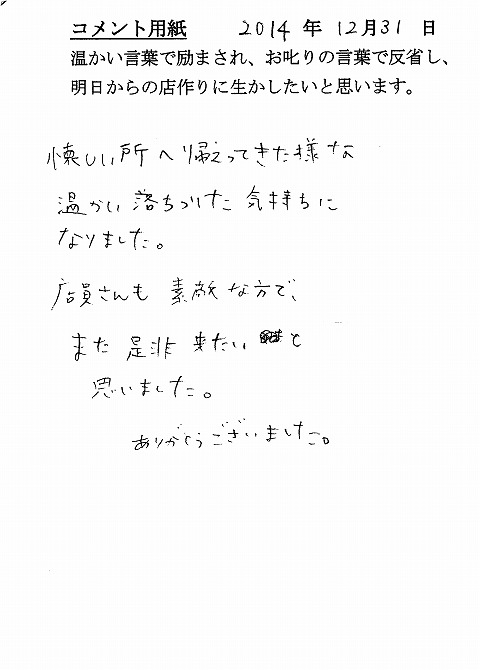 コメント用紙 2014 年 12月31 日
温かい言葉で励まされ、お叱りの言葉で反省し、
明日からの店作りに生かしたいと思います。
懐しい所へ帰えってきた様な
温かい落ちつけた気持ちに
なりました。
店員さんも素敵な方で、
また是非来たいと
思いました。
ありがとうございました。